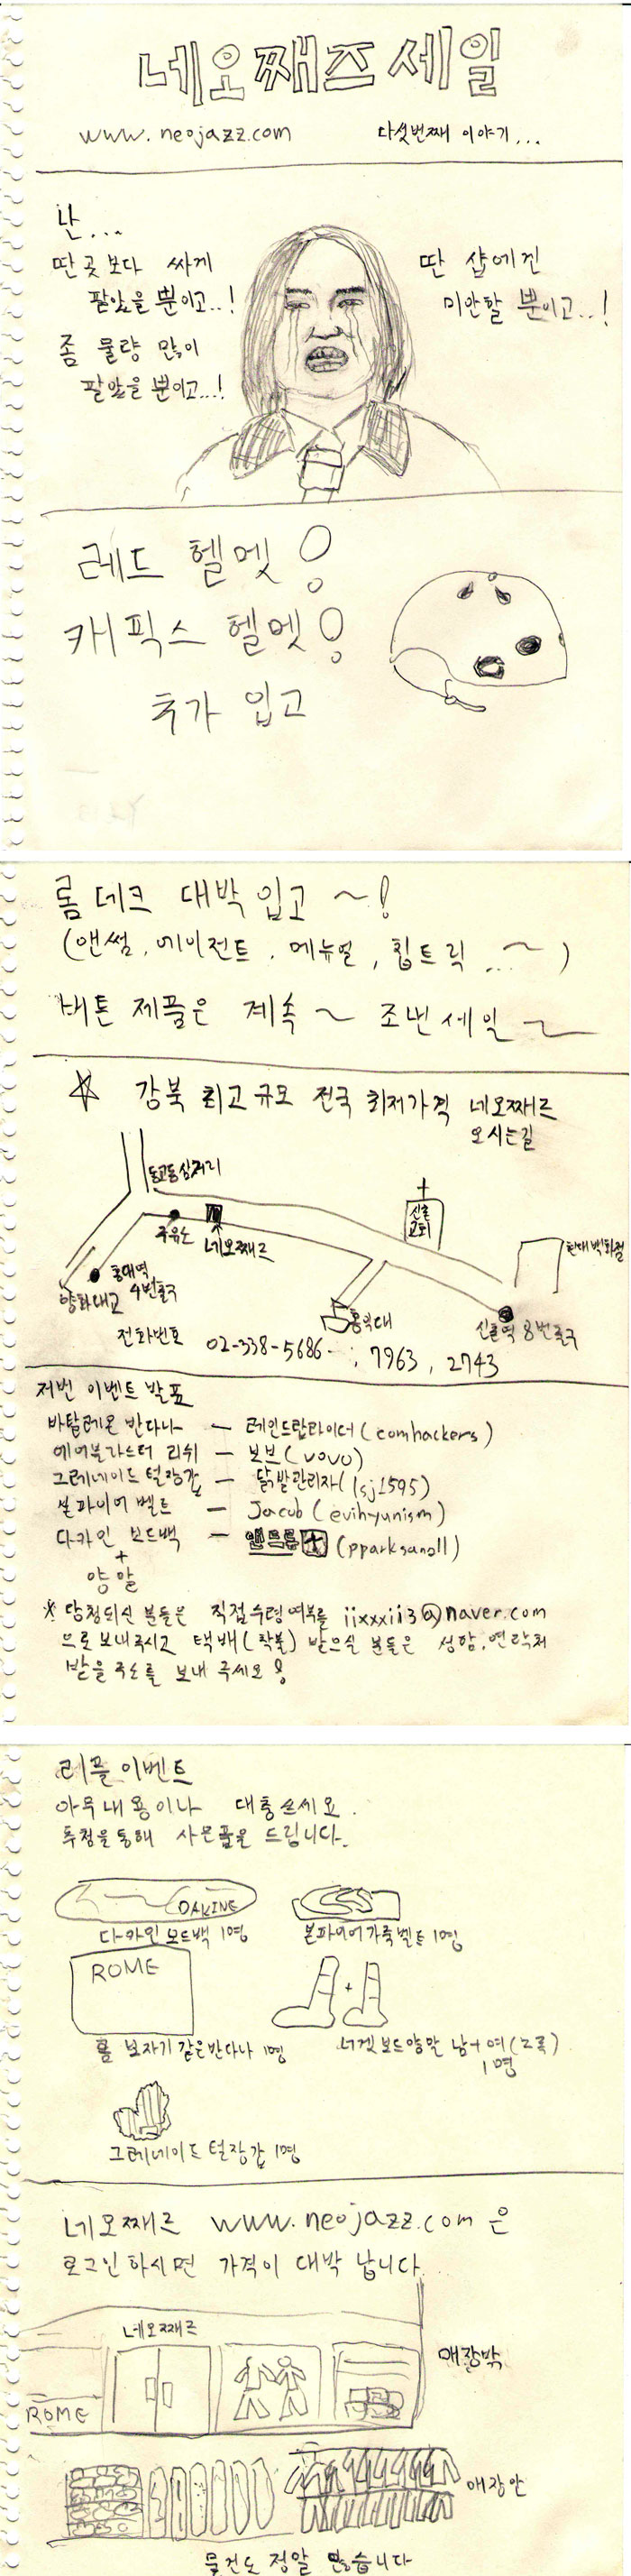 네오째즈 세일
www.neojazz.com 다섯번째 이야기...
난...
딴곳보다 싸게
팔았을 뿐이고..!
좀 물량 많이
팔았을 뿐이고...!
딴 샵에겐
미안할 뿐이고..!
레드 헬멧!
캐픽스 헬멧!
추가 입고
롬 데크 대박 입고 ~!
(앤썸, 에이전트, 메뉴얼, 립트릭...~)
버튼 제품은 계속 ~ 조낸 세일 ~
☆ 강북 최고 규모 전국 최저가격 네오째즈
오시는길
동교동삼거리
신촌
교회
주유소
네오째즈
현대백화점
홍대역
4번출구
양화대교
홍익대
신촌역 8번출구
전화번호 02-338-5686, 7963, 2743
저번 이벤트 발표
바탈레온 반다나 - 레인드랍라이더(comhackers)
에어블라스터 리쉬 - 보브(vovo)
그레네이드 털장갑 - 닭발관리자(lsj1595)
본파이어 벨트 - Jacob(evihyunism)
다카인 보드백 - 앤드류(pparksanoll)
+
양말
※ 당첨되신 분들은 직접수령여부를 iixxxii3@naver.com
으로 보내주시고 택배(착불) 받으실 분들은 성함, 연락처
받을주소를 보내 주세요!
리플 이벤트
아무내용이나 대충쓰세요.
추첨을통해 사은품을 드립니다.
DAKINE
다카인 보드백 1명
본파이어가죽벨트 1명
ROME
롬 보자기 같은반다나 1명
+
너겟보드양말 남+여(노록)
1명
그레네이드 털장갑 1명
네오째즈 www.neojazz.com 은
로그인하시면 가격이 대박 납니다.
네오째즈
매장밖
ROME
매장안
물건도 정말 많습니다